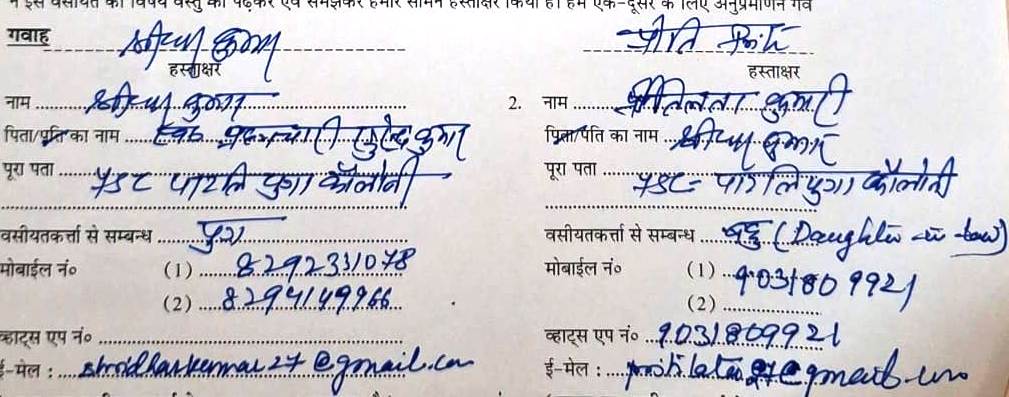 ने इस वसीयत की विषय वस्तु को पढ़कर एवं समझकर हमारे सामने हस्ताक्षर किया है। हम एक-दूसरे के लिए अनुप्रमाणन गव
गवाह
हस्ताक्षर
नाम श्रीधर कुमार
पिता/पति का नाम
पूरा पता 45C पाटलिपुत्रा कॉलोनी
वसीयतकर्त्ता से सम्बन्ध पुत्र
मोबाईल नं० (1) 8292331078
(2) 8294149966
व्हाट्स एप नं०
ई-मेल : shridharkumar27@gmail.com
हस्ताक्षर
2. नाम प्रीतिलता कुमारी
पिता/पति का नाम श्रीधर कुमार
पूरा पता 45C- पाटलिपुत्रा कॉलोनी
वसीयतकर्त्ता से सम्बन्ध बहु (Daughter in law)
मोबाईल नं० (1) 9031809921
(2)
व्हाट्स एप नं० 9031809921
ई-मेल :